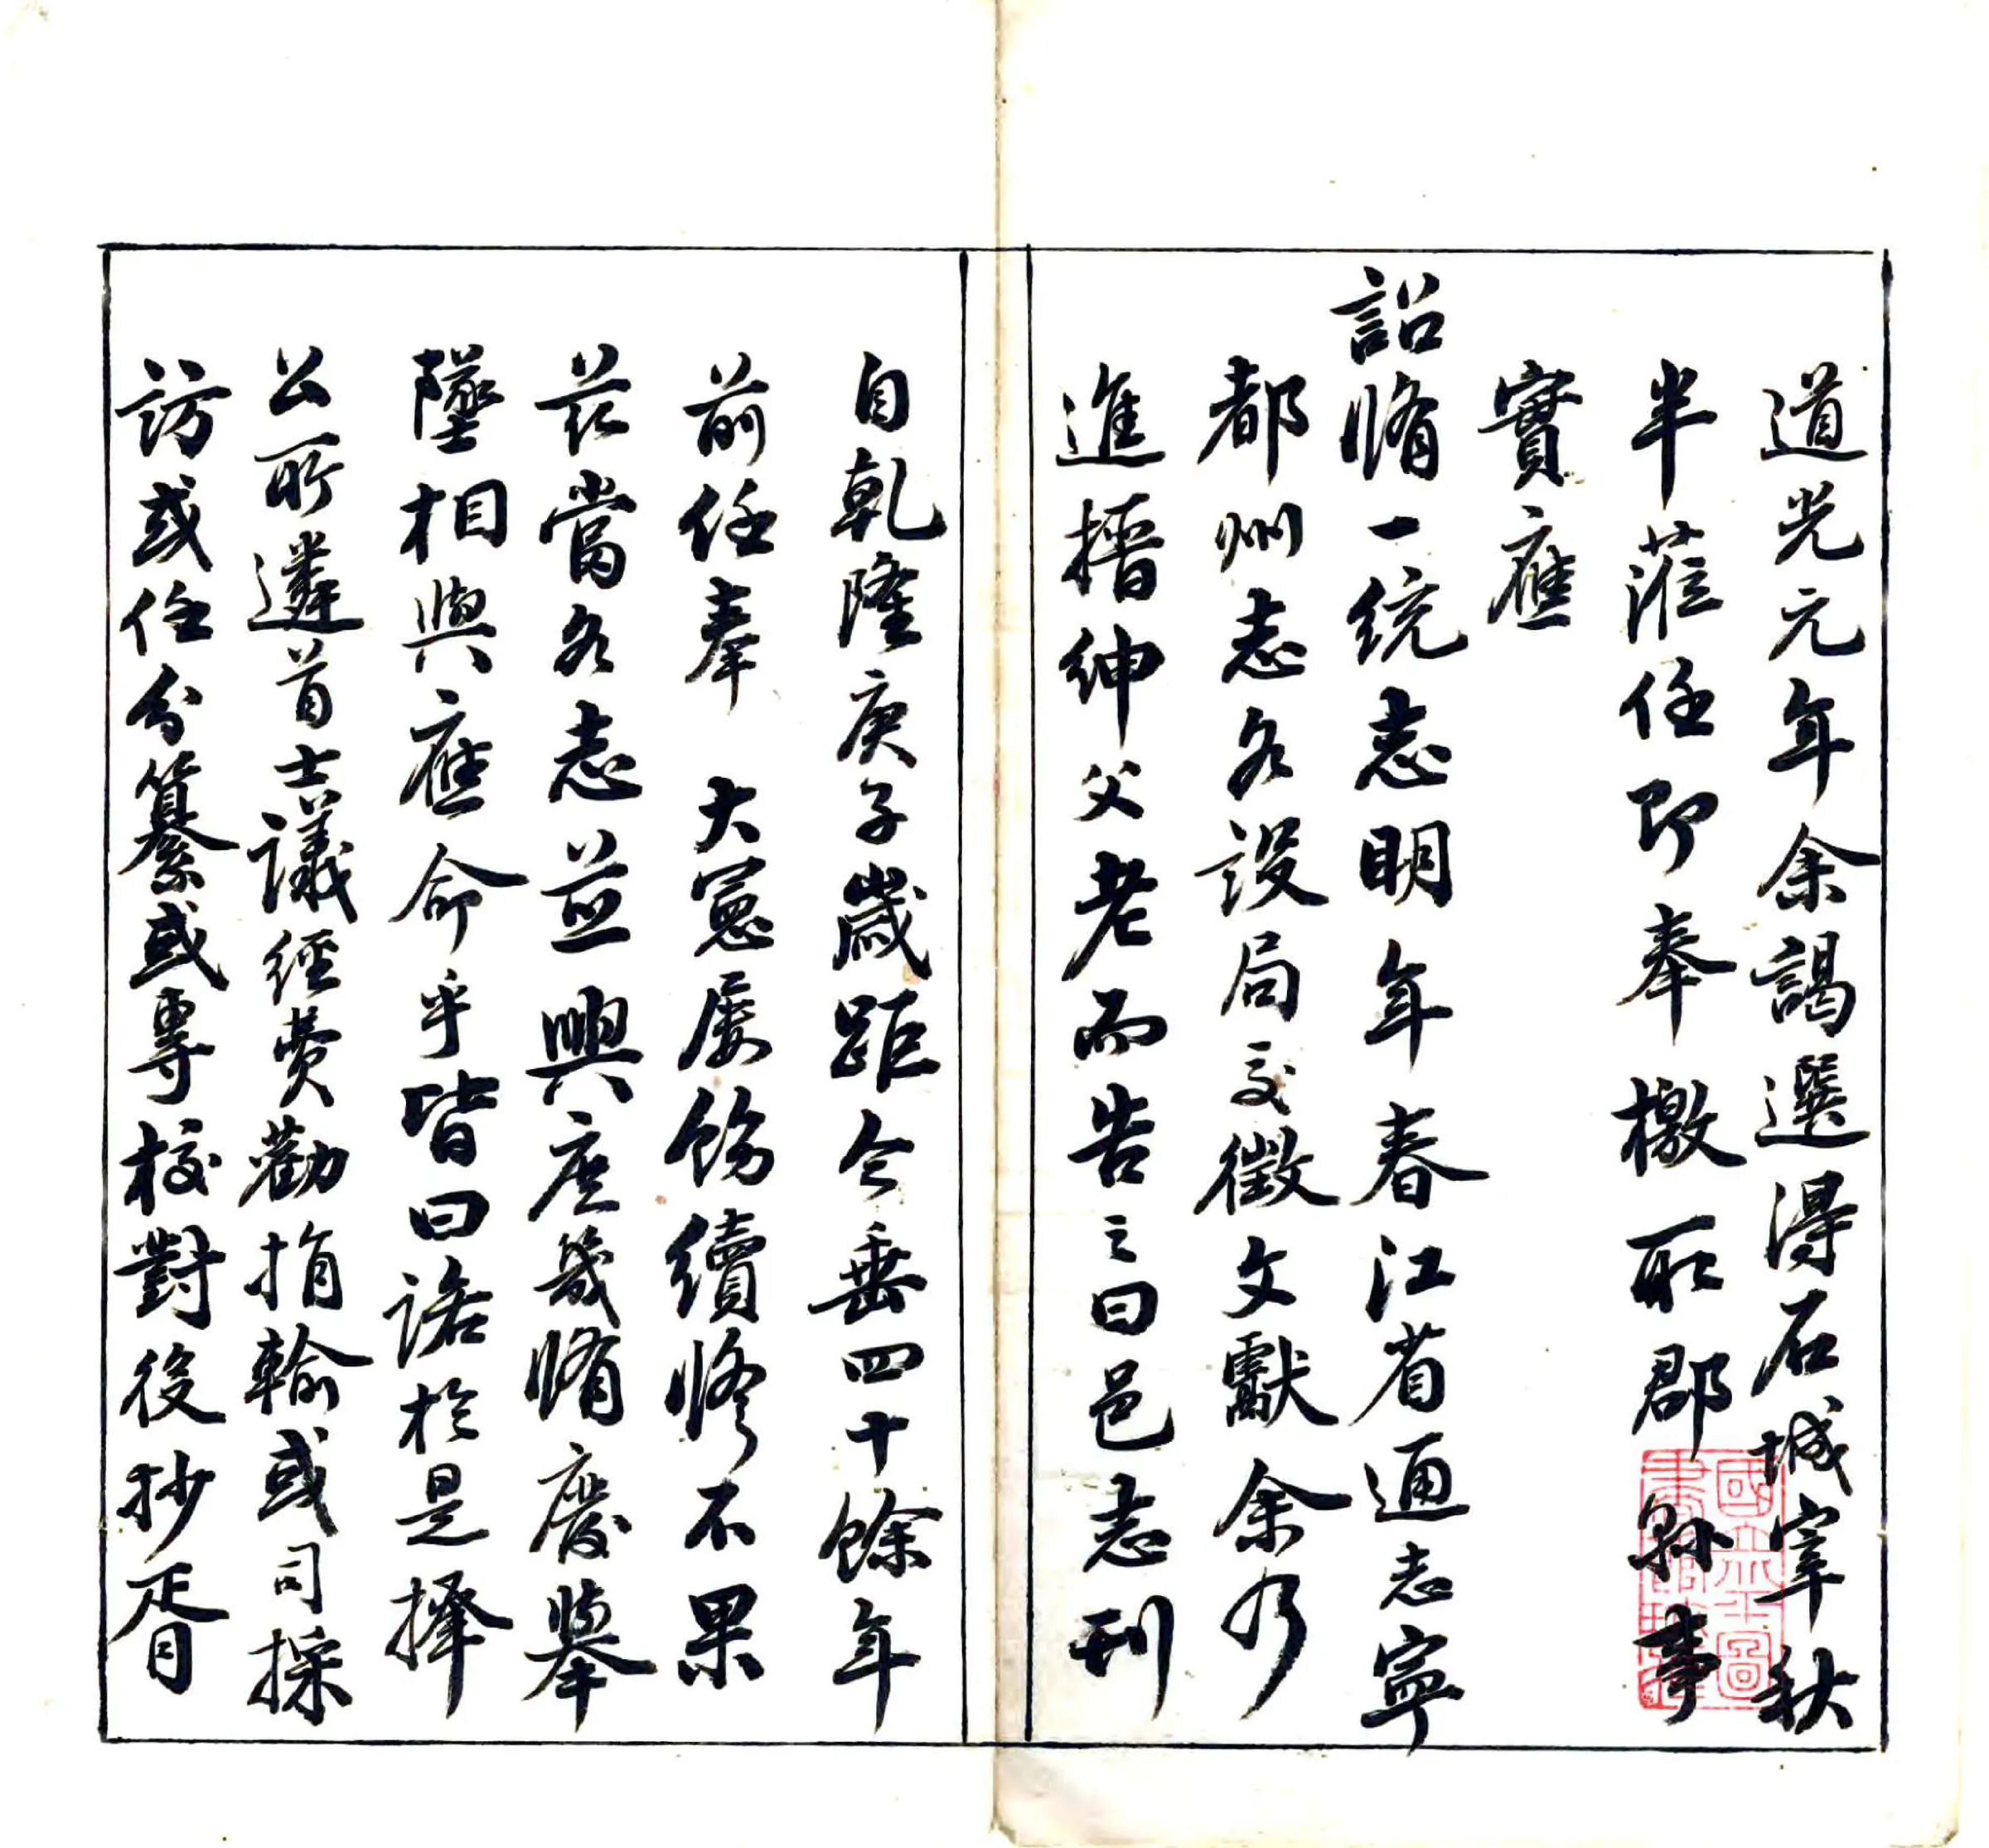 道光元年余謁選得石城宰秋
半蒞任即奉檄取郡縣事
實應
詔脩一統志明年春江省通志寧
都州志各設局交徵文獻余乃
進搢紳父老而告之曰邑志刊
自乾隆庚子歲距今垂四十餘年
前任奉 大憲屡飭續修不果
茲當各志並興庶幾脩廢舉
墜相與應命乎皆曰諾於是擇
公所遴首士議經費勸捐輸或司採
訪或任分纂或專校對後抄胥
國立北平圖
書館收藏